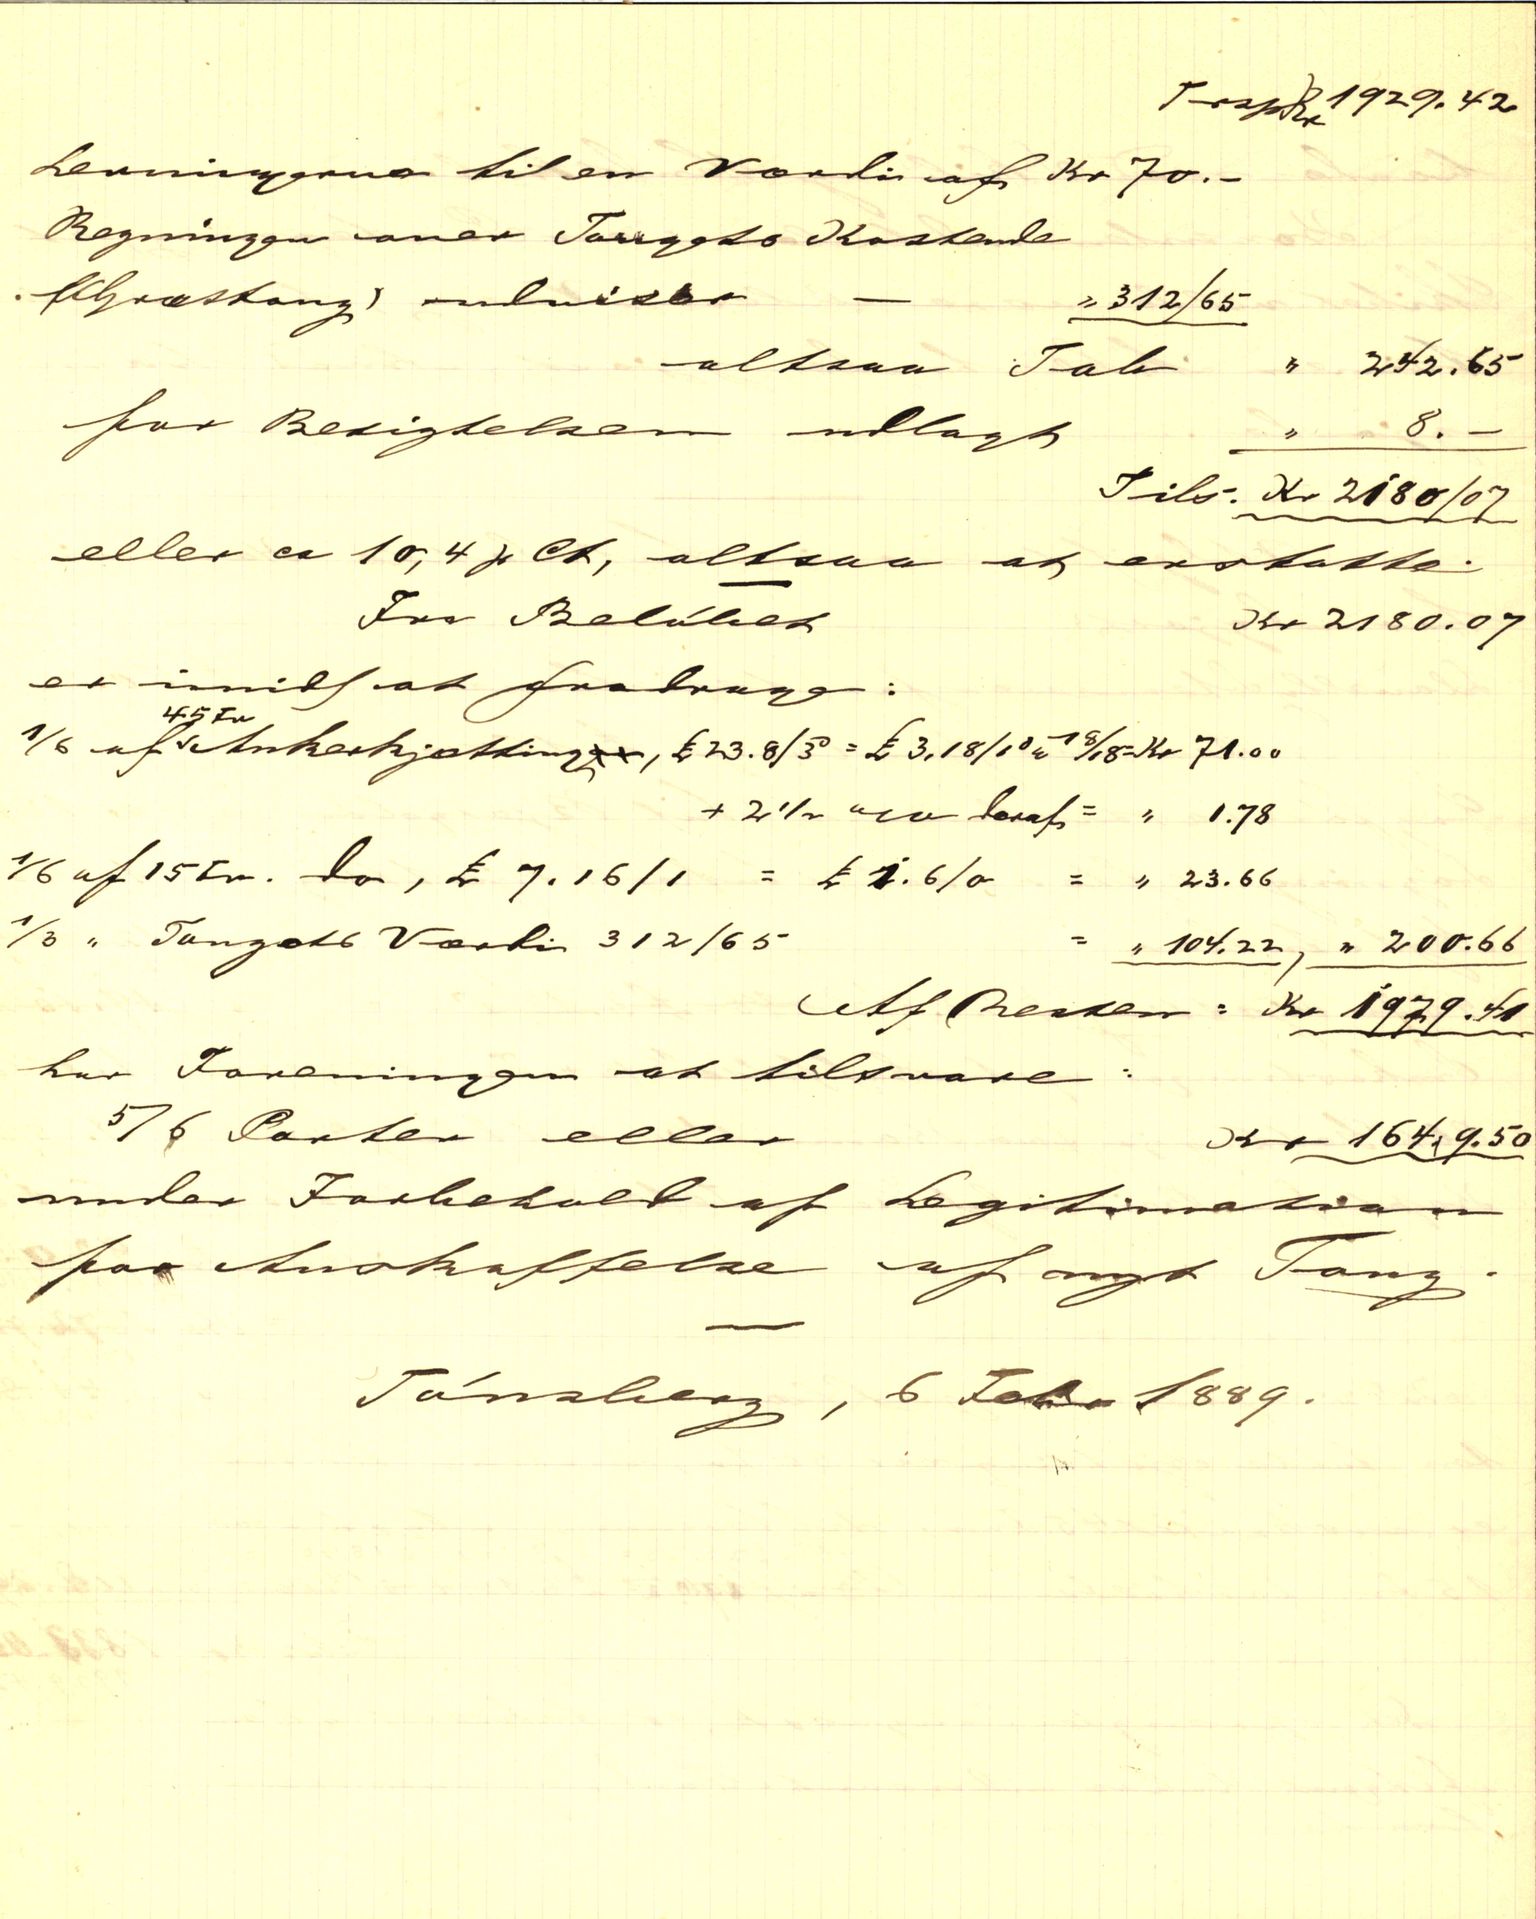 Trsp Kr 1929.42
Levningerne til en Værdi af Kr 70.-
Regningen over Tougets Kostende
(Græstoug) udviser — " 312/65
altsaa Tab " 242.65
for Besigtelsen udlagt " 8.-
Tils. Kr 2180/07
eller ca 10,4 p Ct, altsaa at erstatte.
Fra Belöbet Kr 2180.07
er imidl at fradrage:
45 Fv
1/6 af Ankerkjætting, £ 23.8/3 = £ 3.18/1 a 18/18 = Kr 71.00
+ 2 1/2 % deraf = " 1.78
1/6 af 15 Fv. do, £ 7.16/1 = £ 1.6/0 = " 23.66
1/3 " Tougets Værdi 312/65 = " 104.22, " 200.66
Af Resten = Kr 1979.41
har Foreningen at tilsvare:
5/6 Parter eller Kr 1649.50
under Forbehold af Legitimation
for Anskaffelse af nyt Toug.
Tönsberg, 6 Febr 1889.